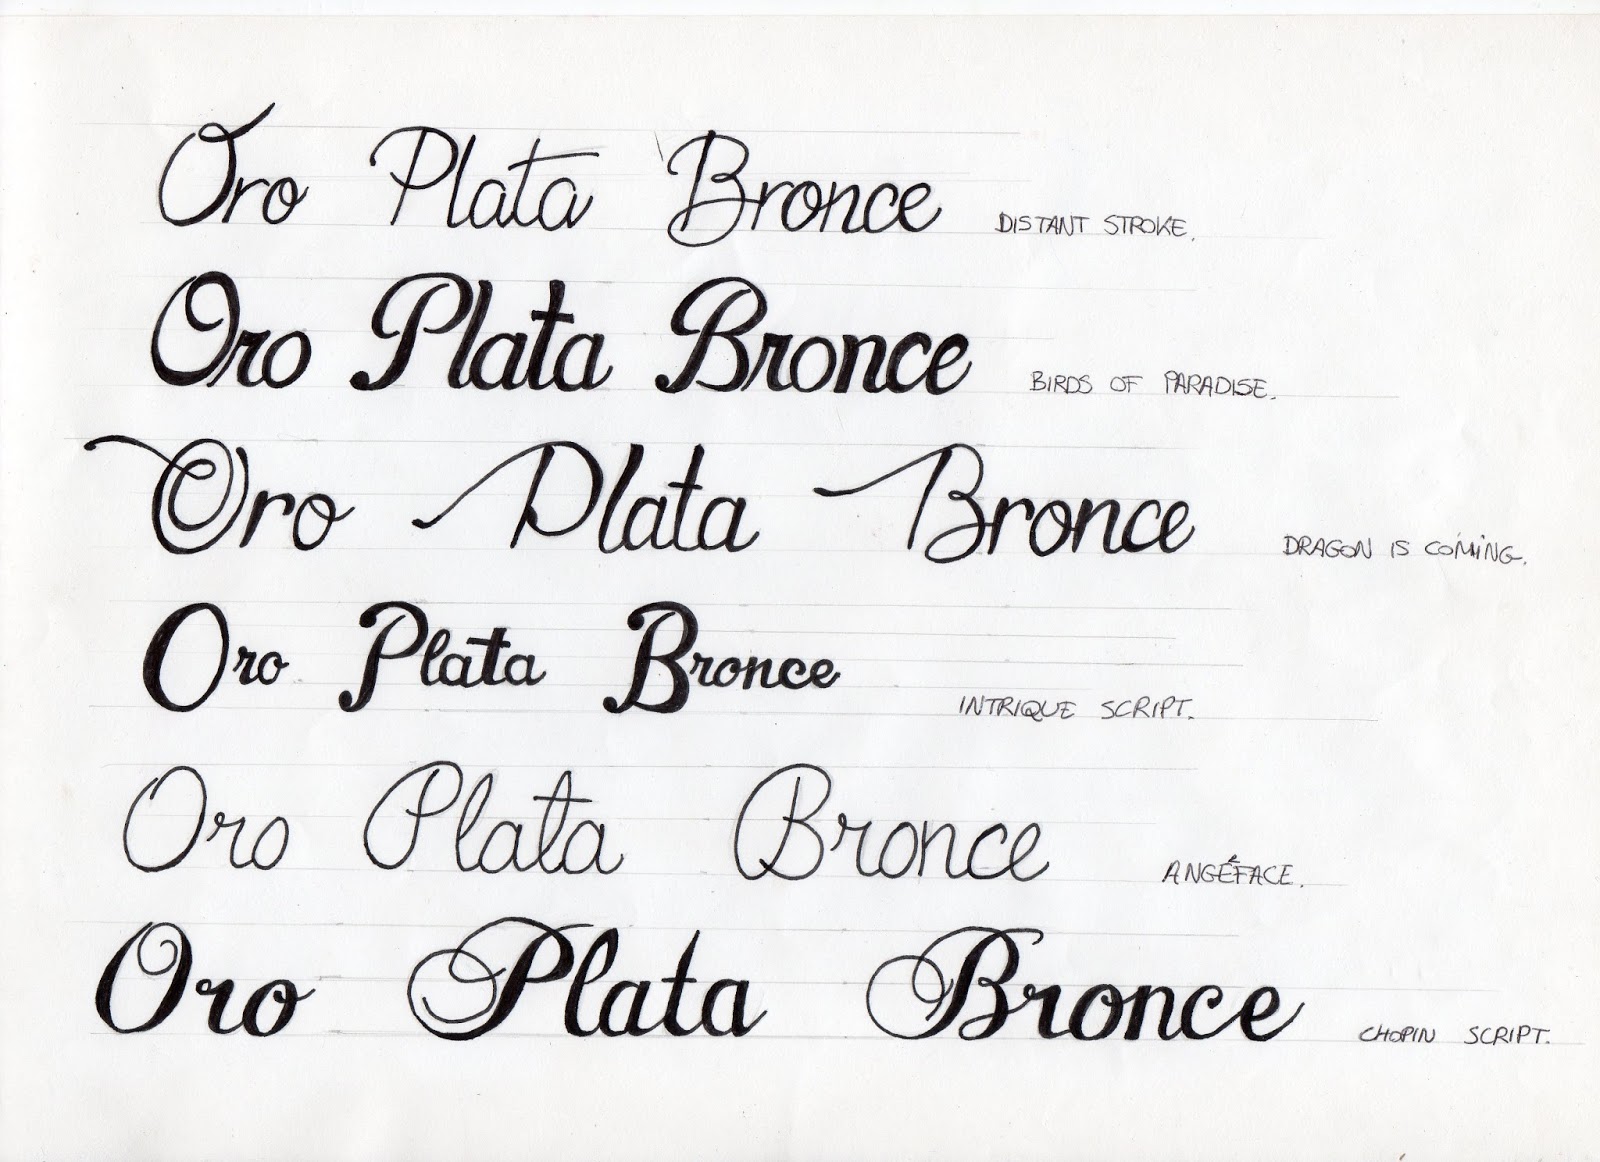 Oro Plata Bronce DISTANT STROKE.
Oro Plata Bronce BIRDS OF PARADISE.
Oro Plata Bronce DRAGON IS COMING.
Oro Plata Bronce INTRIQUE SCRIPT.
Oro Plata Bronce ANGÉFACE.
Oro Plata Bronce CHOPIN SCRIPT.